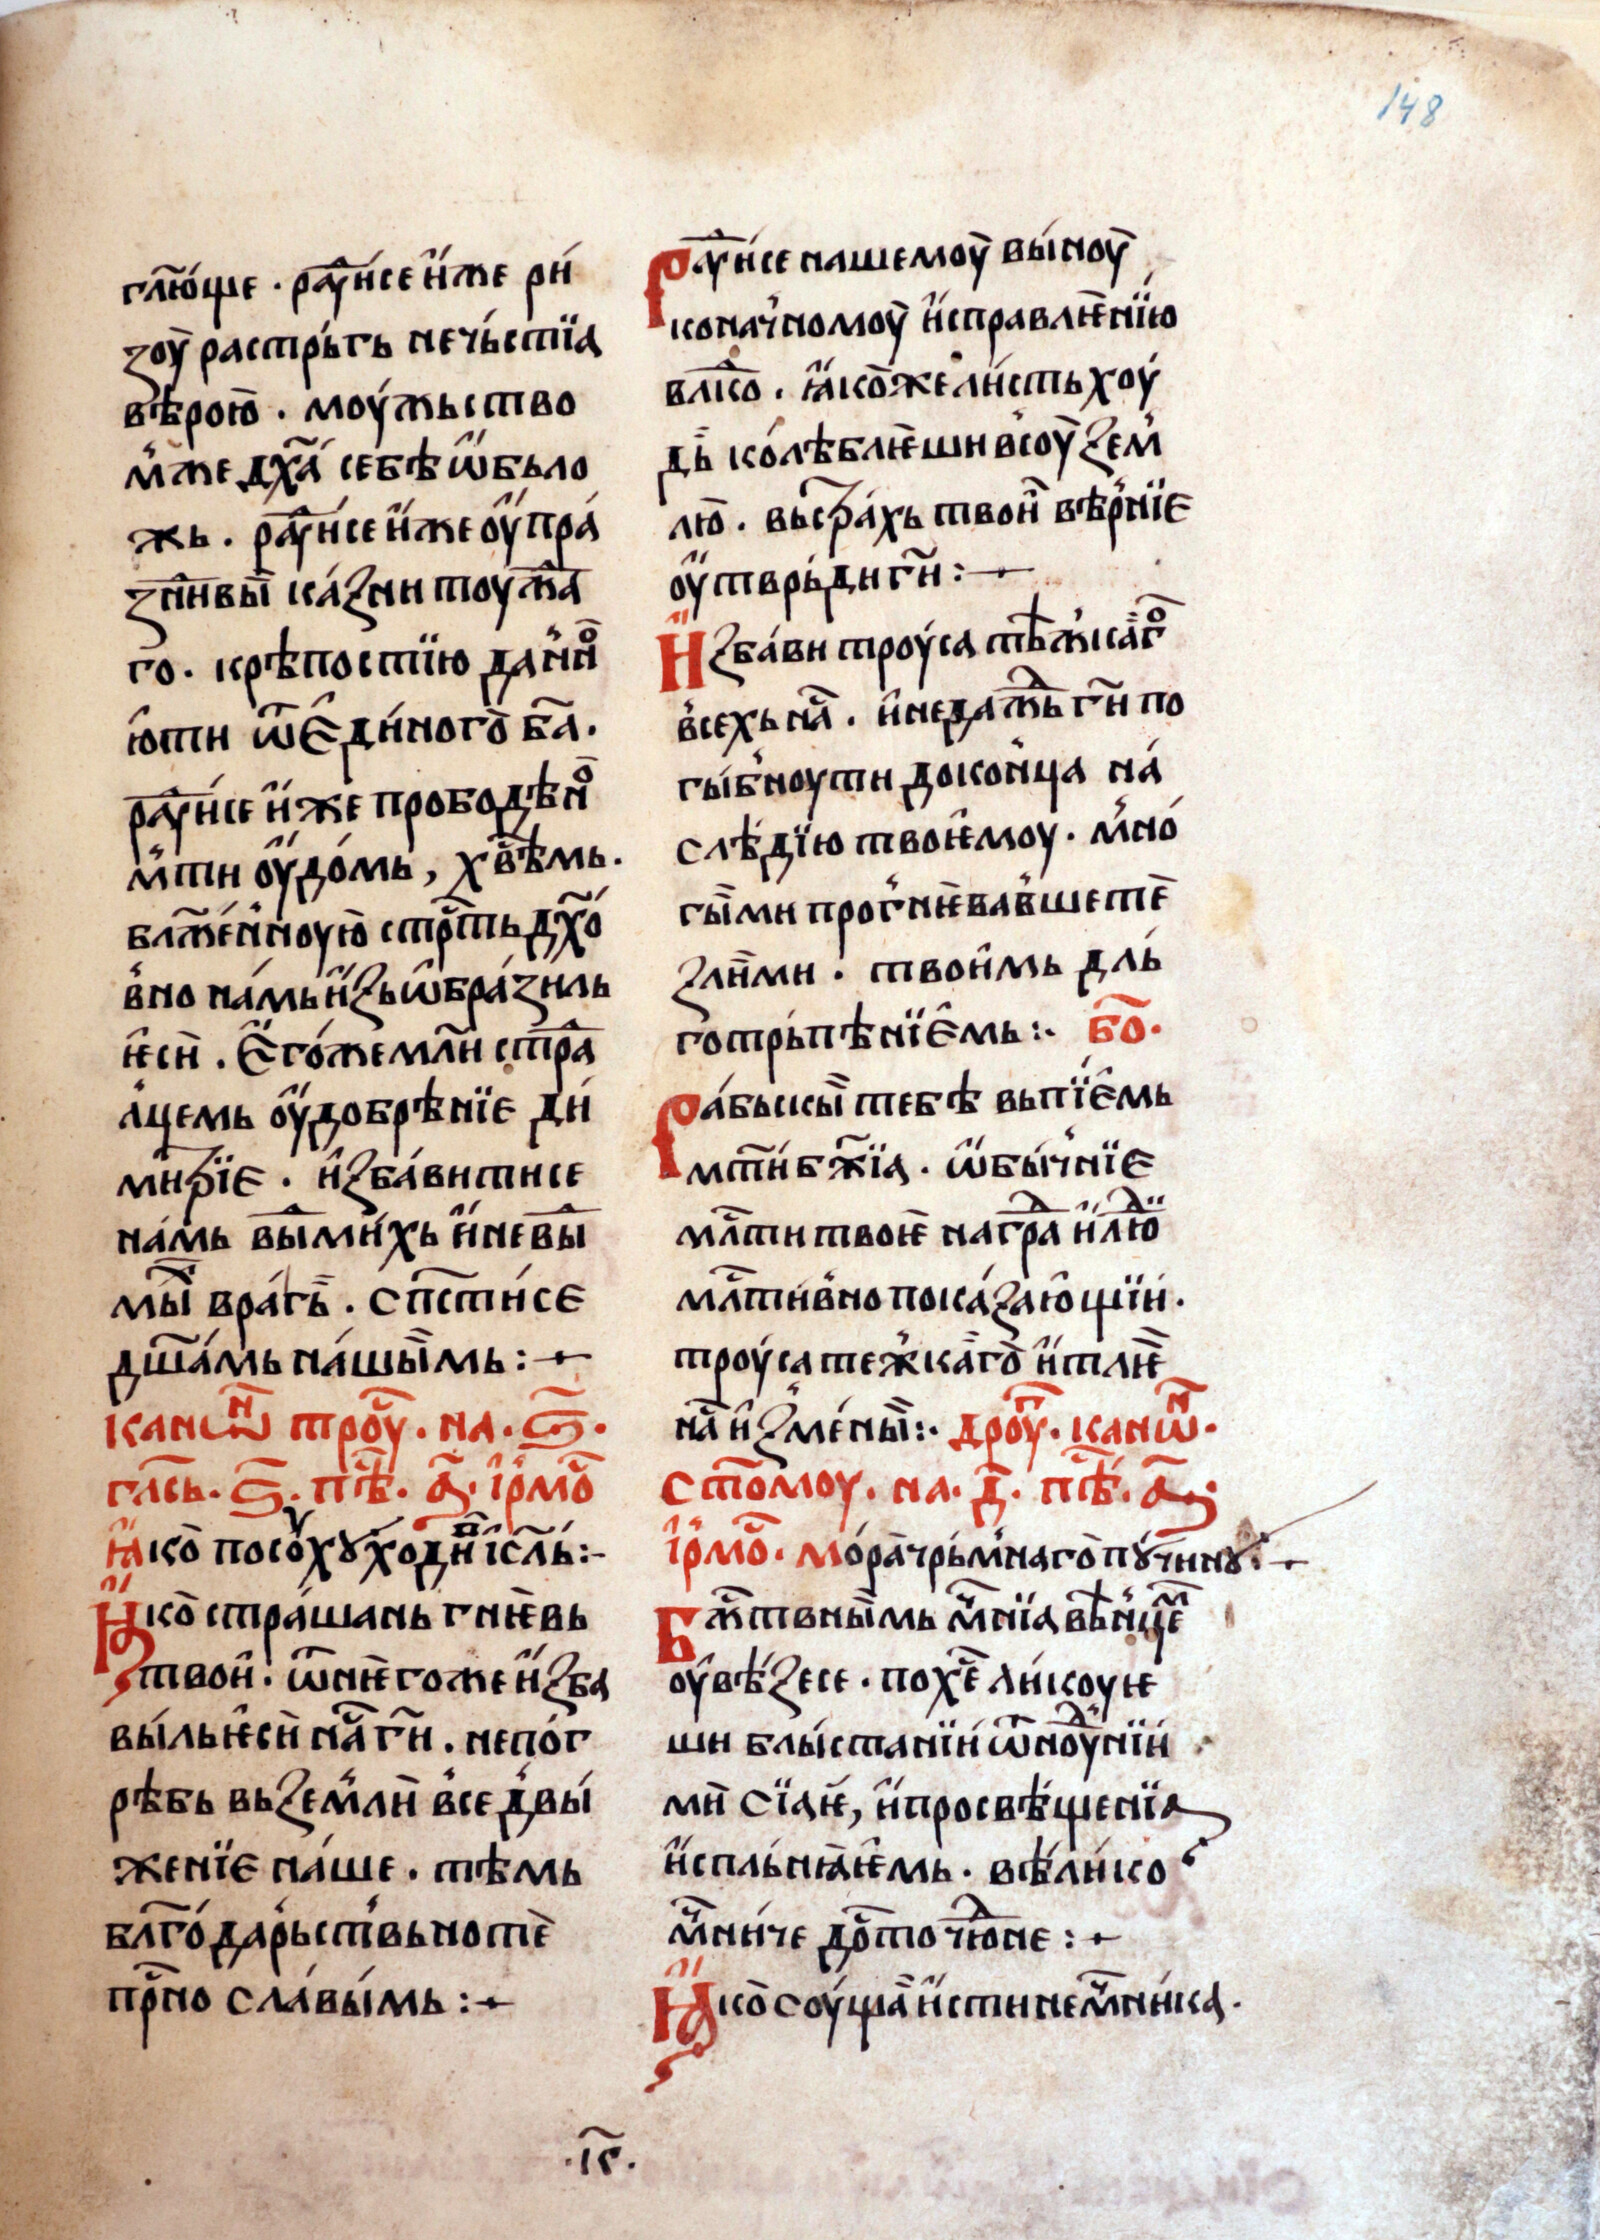 148
гл҃ю́ще · раⷣꙋ́исе и҆́же ри́
зоу̀ растрь́гь нечь́стїа
вѣ́рою̀ · моу́жьство
м҆́же дх҃а́ себѣ ѡ҆бьло
жь · раⷣꙋ́исе и҆́же оу҆пра
зни́вы ка́ꙁни тоуⷤжа
го · крѣ́постїю да́нноⷨ
ю҆ти ѿе҆ди́ного̀ ба҃ ·
раⷣꙋ́исе и҆́же прободѣ́ноⷨ
м҆ти оу҆до́мь, хв҃ѣмь ·
бл҃же́нноую̀ стрⷭ҇ть дх҃о́
вно на́мь и҆ꙁьѡ҆бра́зиль
ѥ҆сѝ · Е҆го́же мл҃и стра
а҆́щемь оу҆добрѣ́нїе ди
ми́трїе · и҆ꙁба́витисе
на́мь ви́димихь и҆ неви
ды́миⷯ вра́гь · сп҃сти́се
дш҃а́мь на́шы̏мь :·
канѡⷩ҇ троуⷭ · на · ѕ҃ ·
гла́сь · ѕ҃ · пѣⷭ · а҃ · і҆рмоⷭ
Ꙗ҆ко̀ посо́ухꙋ ходиⷡ҇ і҆сл҃ь :·
Ꙗ҆ко̀ стра́шань гнѣ́вь
твои̂ · ѿнѥ́гоже и҆ꙁба
вы́ль ѥ҆сѝ наⷭ гѝ҃ · непо́г
рѣ́бь вьꙁе́млѝ все дви́
женїе на́ше · тѣ́мь
бл҃го́да́рьствьнотѐ
прⷭ҇но сла́вы́мь :·
Раⷣꙋ́исе на́шемоу̀ вы́ноу̀
кона́чномоу̀ и҆справлѥ́нїю
влⷣко · ꙗ҆ко̀же ли́сть хоу́
дь̀ ко́лѣблѥ̀ши всоу̀ ꙁем
лю̀ · вьстра́хь твои̂ вѣ́рнїе
оу҆тврь́ди гѝ҃ :·
И҆ꙁба́ви троу́са тѣ́жкаⷢ҇
всехь на҃ · и҆неда́жⷣь гѝ҃ по
ги́бноути доко́нца на́
слѣ́дїю твоѥ́моу · м҆но́
гы́ми прогнѥ̀ва́вшетѐ
ꙁлѝми · твои̂мь дль́
готрь́пѣнїе҆мь :· бо҃ ·
Ра́бьскы̀ тебѣ̀ вьпїе҆мь
мт҃и́ бж҃їа · ѡ҆бы́чнїе
млⷭ҇ти твоѥ̀ на граⷣ и҆ люⷣ
млⷭ҇ти́вно пока́ꙁаю̂щїи ·
троу́са те́жкаго̀ и҆ тлѥ̀
на҃ и҆ꙁме́ны :· дроуⷢ · канѡⷩ҇ ·
ст҃омоу · на · д҃ · пѣⷭ · а҃ ·
і҆рмоⷭ · мо́ра чрь́мнаго̀ пꙋчинꙋ :·
Бжⷭ҇твны̀мь мⷱ҇нїа вѣ́нцеⷨ
оу҆вѣ́ꙁесе · похⷭ҇ѣ ли́коую
ши бли́станїи ѿноуⷣнїи
мѝ сїа́ѥ, и҆просвѣ́щенїа
и҆спль́нꙗѥ҆мь · вѣ́ли́ко
мⷱ҇ни́че дⷭ҇то чюⷣне :·
Ꙗ҆ко̀ соу́ща и҆́стинне мⷱ҇ни́ка ·
· і҃ѕ ·